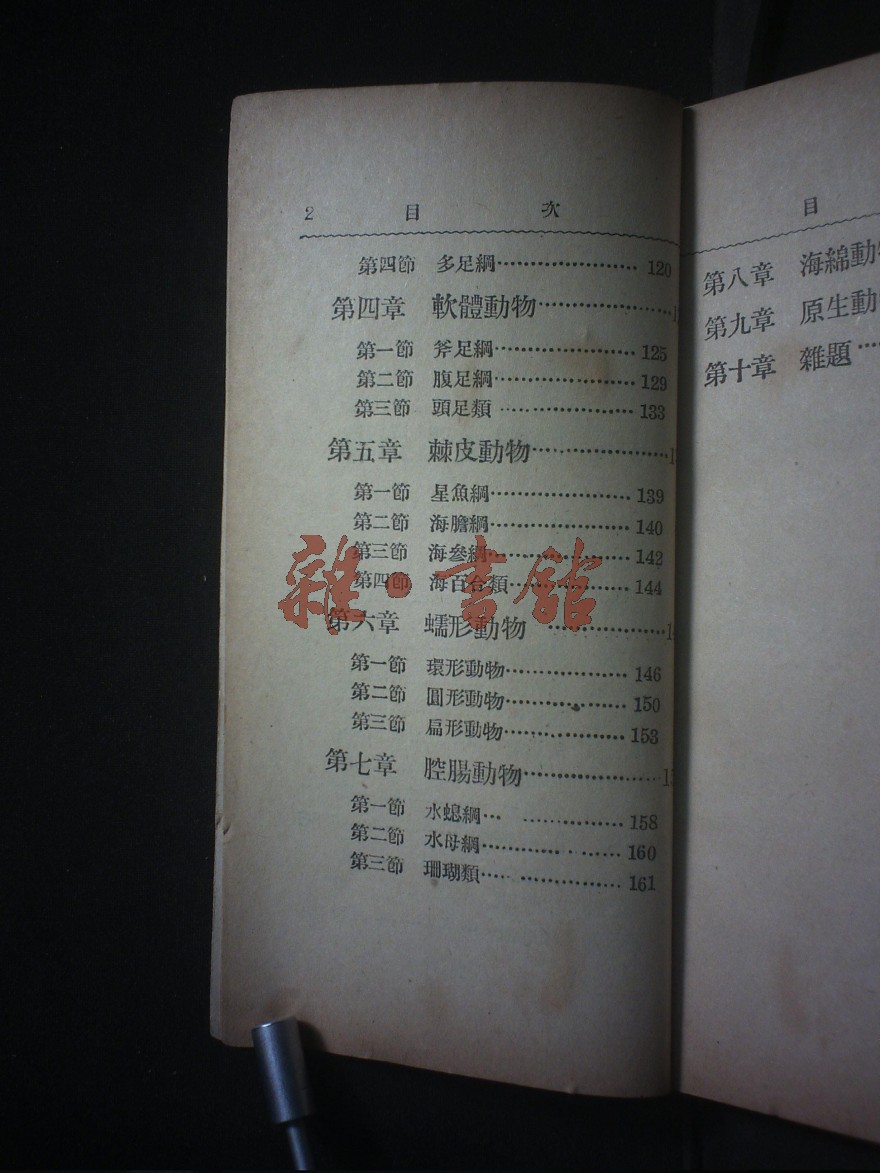 2 目 次
第四節 多足綱………………… 120
第四章 軟體動物………………1
第一節 斧足綱………………… 125
第二節 腹足綱………………… 129
第三節 頭足類………………… 133
第五章 棘皮動物………………1
第一節 星魚綱………………… 139
第二節 海膽綱………………… 140
第三節 海參綱………………… 142
第四節 海百合類……………… 144
第六章 蠕形動物 ……………1
第一節 環形動物……………… 146
第二節 圓形動物……………… 150
第三節 扁形動物……………… 153
第七章 腔腸動物………………1
第一節 水螅綱… …………… 158
第二節 水母綱………………… 160
第三節 珊瑚類…… ………… 161
目
第八章 海綿動物
第九章 原生動
第十章 雜題…
雜·書館